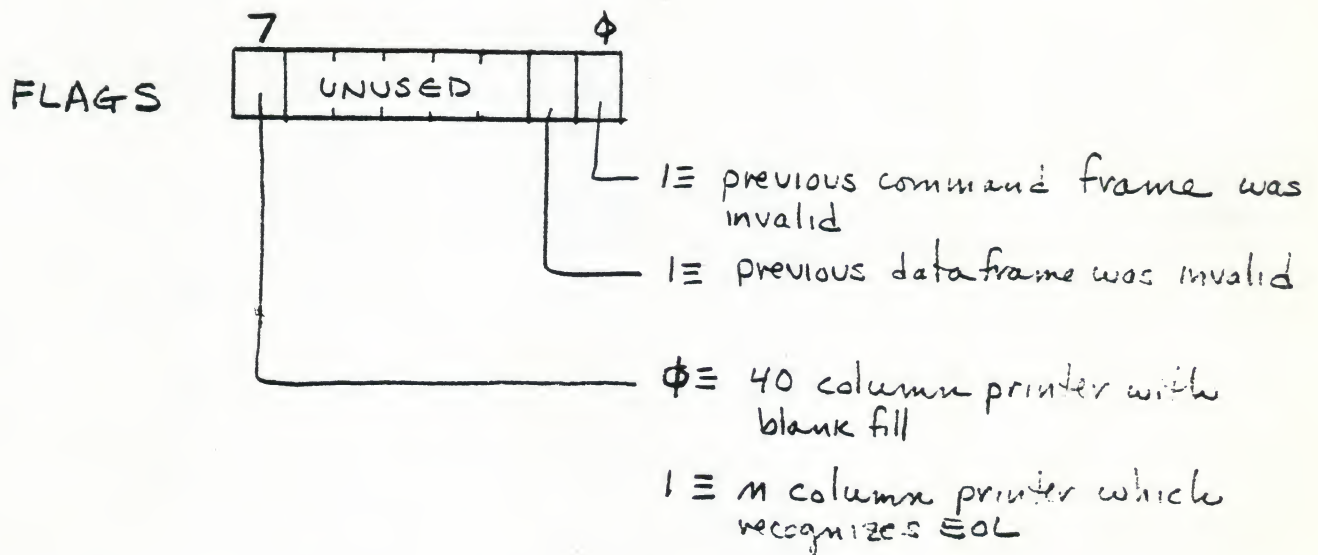 7 φ
FLAGS UNUSED
1≡ previous command frame was
invalid
1≡ previous data frame was invalid
φ≡ 40 column printer with
blank fill
1 ≡ n column printer which
recognizes EOL